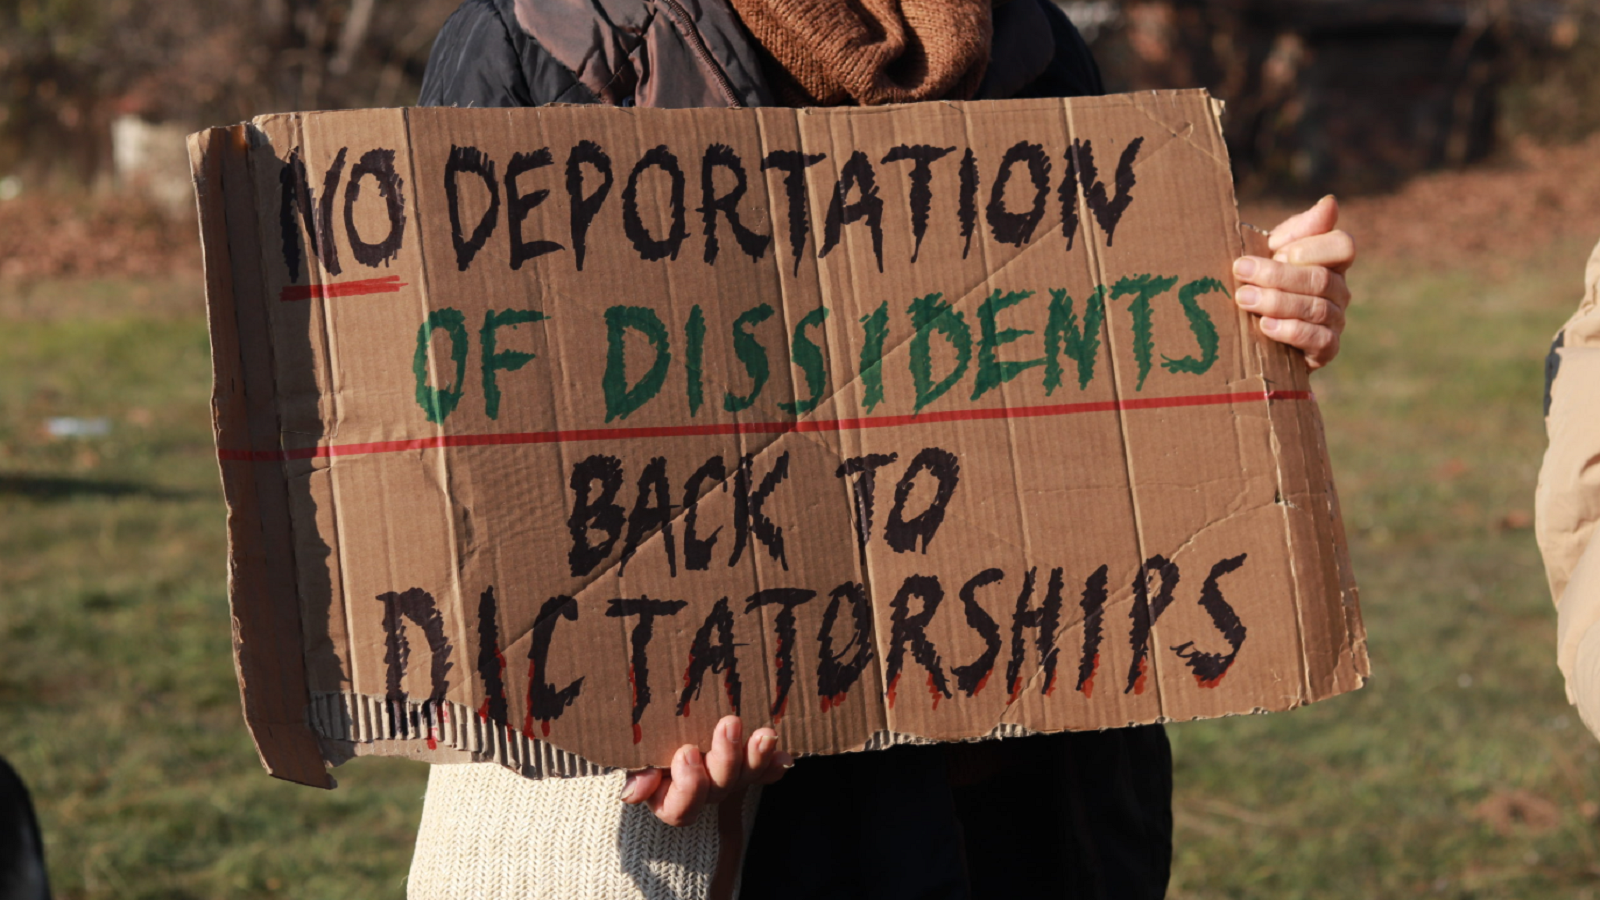 NO DEPORTATION
OF DISSIDENTS
BACK TO
DICTATORSHIPS